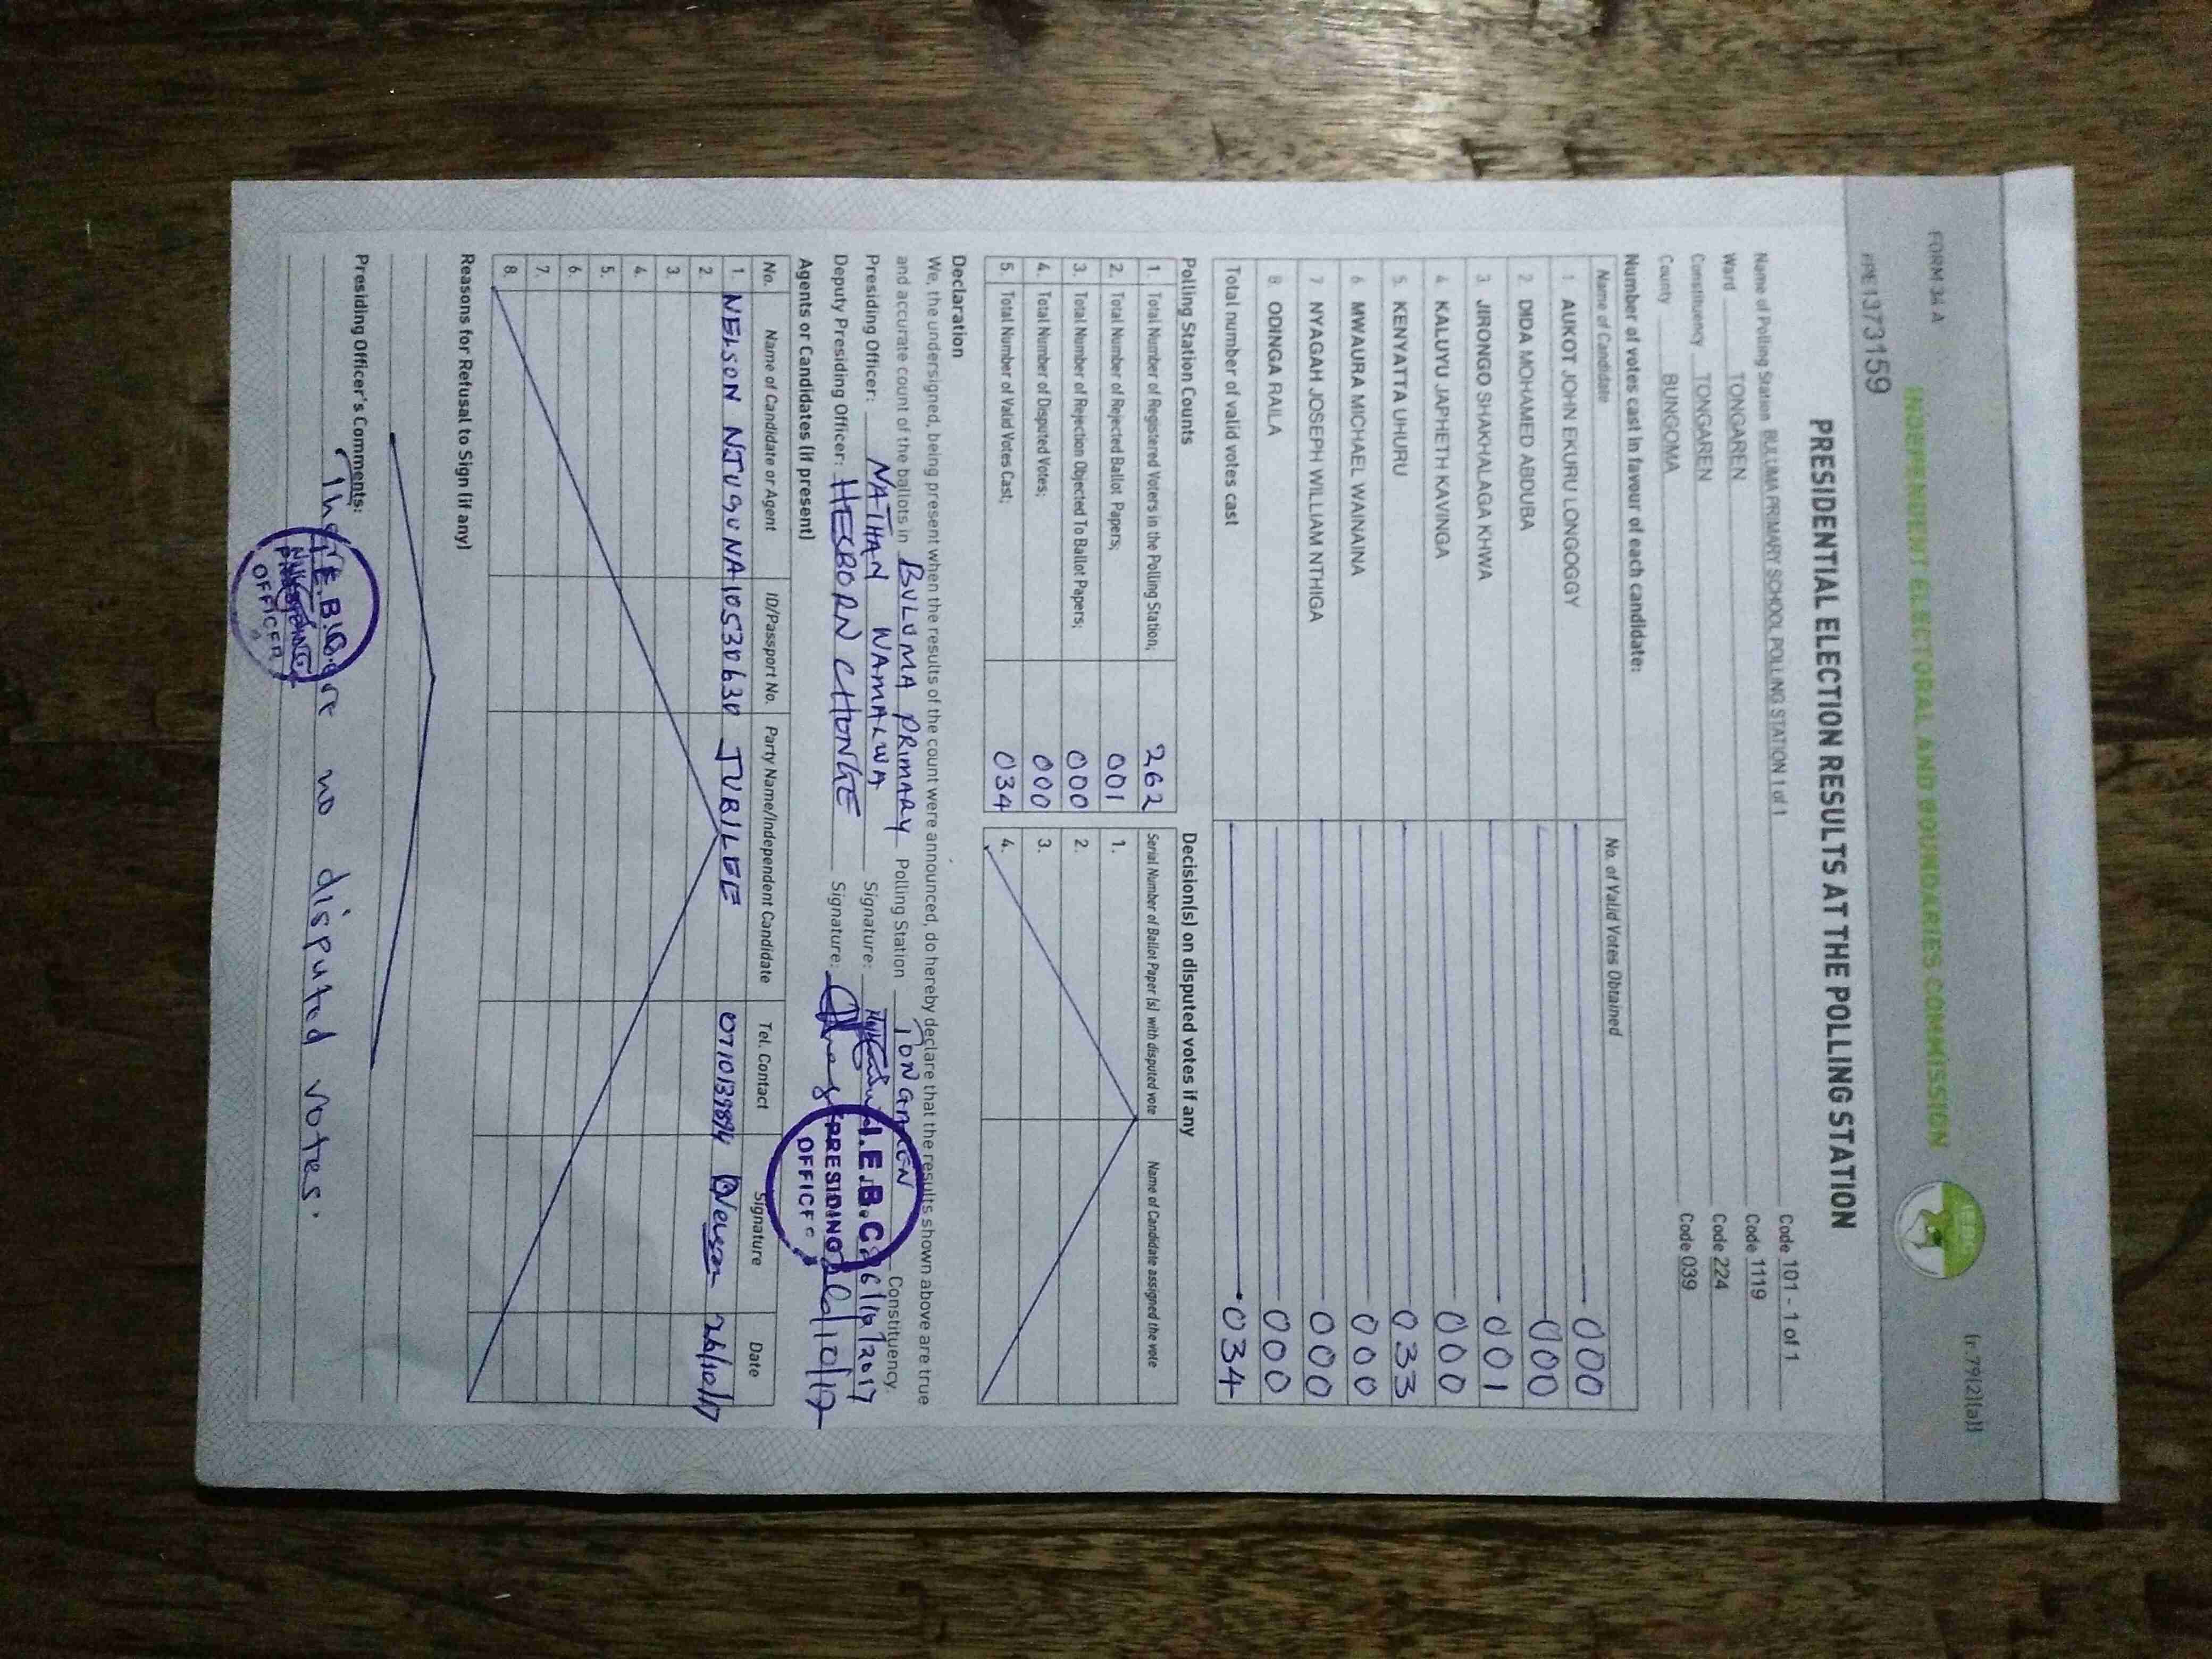 FORM 34 A
(r.79(2)(a))
INDEPENDENT ELECTORAL AND BOUNDARIES COMMISSION
IEBC
1373159
PRESIDENTIAL ELECTION RESULTS AT THE POLLING STATION
Name of Polling Station BULUMA PRIMARY SCHOOL POLLING STATION 1 of 1 Code 101 - 1 of 1
Ward TONGAREN Code 1119
Constituency TONGAREN Code 224
County BUNGOMA Code 039
Number of votes cast in favour of each candidate:
Name of Candidate No. of Valid Votes Obtained
1 AUKOT JOHN EKURU LONGOGGY 000
2. DIDA MOHAMED ABDUBA 000
3 JIRONGO SHAKHALAGA KHWA 001
4 KALUYU JAPHETH KAVINGA 000
5. KENYATTA UHURU 033
6 MWAURA MICHAEL WAINAINA 000
7 NYAGAH JOSEPH WILLIAM NTHIGA 000
8. ODINGA RAILA 000
Total number of valid votes cast 034
Polling Station Counts
1. Total Number of Registered Voters in the Polling Station; 262
2. Total Number of Rejected Ballot Papers; 001
3. Total Number of Rejection Objected To Ballot Papers; 000
4. Total Number of Disputed Votes; 000
5. Total Number of Valid Votes Cast; 034
Decision(s) on disputed votes if any
Serial Number of Ballot Paper (s) with disputed vote Name of Candidate assigned the vote
1.
2.
3.
4.
Declaration
We, the undersigned, being present when the results of the count were announced, do hereby declare that the results shown above are true
and accurate count of the ballots in BULUMA PRIMARY Polling Station TONGAREN Constituency.
Presiding Officer: NATHAN WAMALWA Signature: 26/10/2017
Deputy Presiding Officer: HESBORN CHONGE Signature:
I.E.B.C.
PRESIDING
OFFICER
Agents or Candidates (if present)
No. Name of Candidate or Agent ID/Passport No. Party Name/Independent Candidate Tel. Contact Signature Date
1. NELSON NJUGUNA 10530630 JUBILEE 0710139894 Nelson 26/10/17
2.
3.
4.
5.
6.
7.
8.
Reasons for Refusal to Sign (if any)
Presiding Officer's Comments:
There are no disputed votes.
I.E.B.C.
PRESIDING
OFFICER